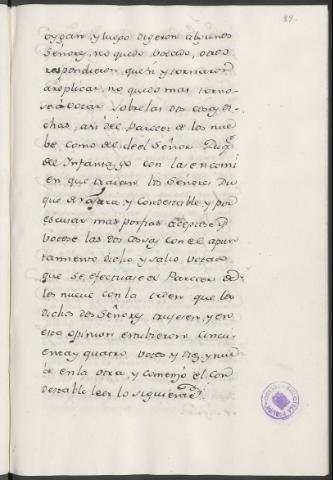 87.
oygan, y luego digeron algunos
Señores, no quedo votado, otros
respondieron que si y tornaron
a replicar, no quedo mas, torno-
se a votar sobre las dos cosas di-
chas, asi del Parecer de los nue
be, como de el del Señor Duq.e
del Infantazgo con la enmi
en que traian los Señores Du
que de Najara, y Condestable y por
escusar mas porfias acepto se
votose las dos cosas con el apun
tamiento dicho, y salio votado
que se efectuase el Parecer de
los nueve con la orden que los
dichos dos Señores trujesen, y en
esta opinion estubieron cincu-
enta y quatro votos y diez y nue
be en la otra, y comenzó el Con
destable leer lo siguiente